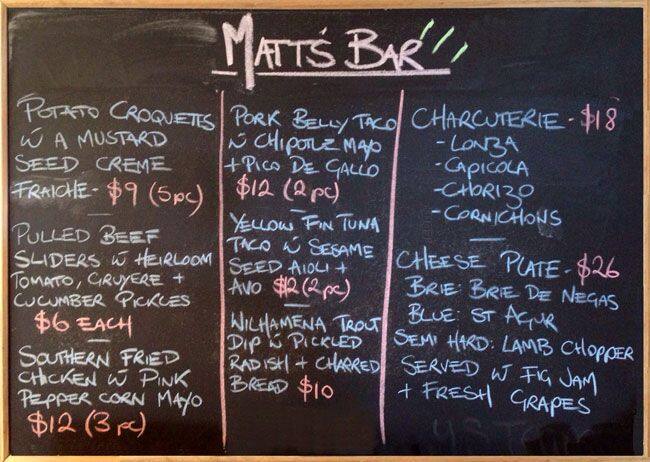 MATT'S BAR
POTATO CROQUETES
W A MUSTARD
SEED CREME
FRAICHE - $9 (5pc)
PULLED BEEF
SLIDERS W HEIRLOOM
TOMATO, GRUYERE +
CUCUMBER PICKLES
$6 EACH
SOUTHERN FRIED
CHICKEN W PINK
PEPPER CORN MAYO
$12 (3 pc)
PORK BELLY TACO
W CHIPOTLE MAYO
+ PICO DE GALLO
$12 (2 pc)
YELLOW FIN TUNA
TACO W SESAME
SEED AIOLI +
AVO $12 (2pc)
WILHAMENA TROUT
DIP W PICKLED
RADISH + CHARRED
BREAD $10
CHARCUTERIE - $18
- LONZA
- CAPICOLA
- CHORIZO
- CORNICHONS
CHEESE PLATE - $26
BRIE: BRIE DE NEGAS
BLUE: ST AGUR
SEMI HARD: LAMB CHOPPER
SERVED W FIG JAM
+ FRESH GRAPES